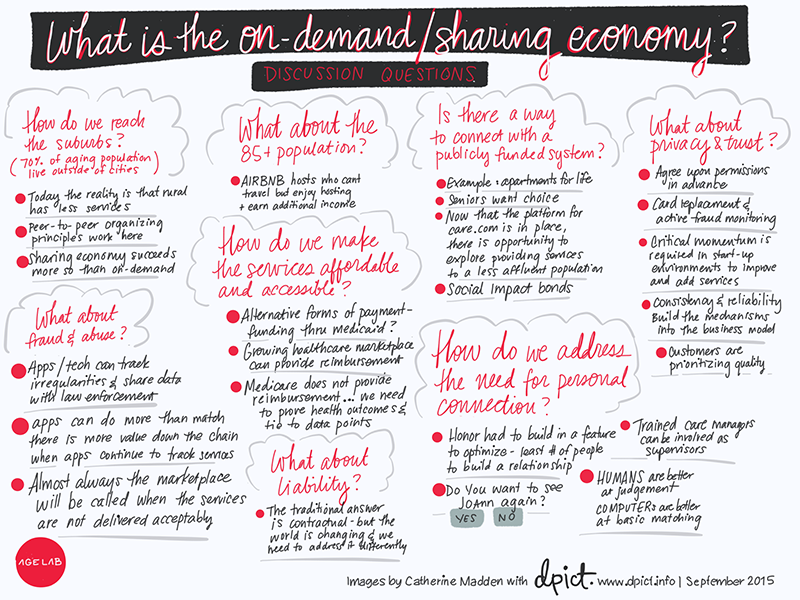 What is the on-demand/sharing economy?
DISCUSSION QUESTIONS
How do we reach
the suburbs?
(70% of aging population
live outside of cities)
Today the reality is that rural
has less services
Peer-to-peer organizing
principles work here
Sharing economy succeeds
more so than on-demand
What about
fraud & abuse?
Apps/tech can track
irregularities & share data
with law enforcement
apps can do more than match
there is more value down the chain
when apps continue to track services
Almost always the marketplace
will be called when the services
are not delivered acceptably
What about the
85+ population?
AIRBNB hosts who cant
travel but enjoy hosting
+ earn additional income
How do we make
the services affordable
and accessible?
Alternative forms of payment-
funding thru medicaid?
Growing healthcare marketplace
can provide reimbursement
Medicare does not provide
reimbursement... we need
to prove health outcomes &
tie to data points
What about
liability?
The traditional answer
is contractual - but the
world is changing & we
need to address it differently
Is there a way
to connect with a
publicly funded system?
Example: apartments for life
Seniors want choice
Now that the platform for
care.com is in place,
there is opportunity to
explore providing services
to a less affluent population
Social Impact bonds
How do we address
the need for personal
connection?
Honor had to build in a feature
to optimize - least # of people
to build a relationship
Do you want to see
JoAnn again?
YES NO
Trained care managers
can be involved as
supervisors
HUMANS are better
at judgement
COMPUTERS are better
at basic matching
What about
privacy & trust?
Agree upon permissions
in advance
Card replacement &
active fraud monitoring
Critical momentum is
required in start-up
environments to improve
and add services
Consistency & reliability
Build the mechanisms
into the business model
Customers are
prioritizing quality
AGELAB
Images by Catherine Madden with dpict. www.dpict.info | September 2015